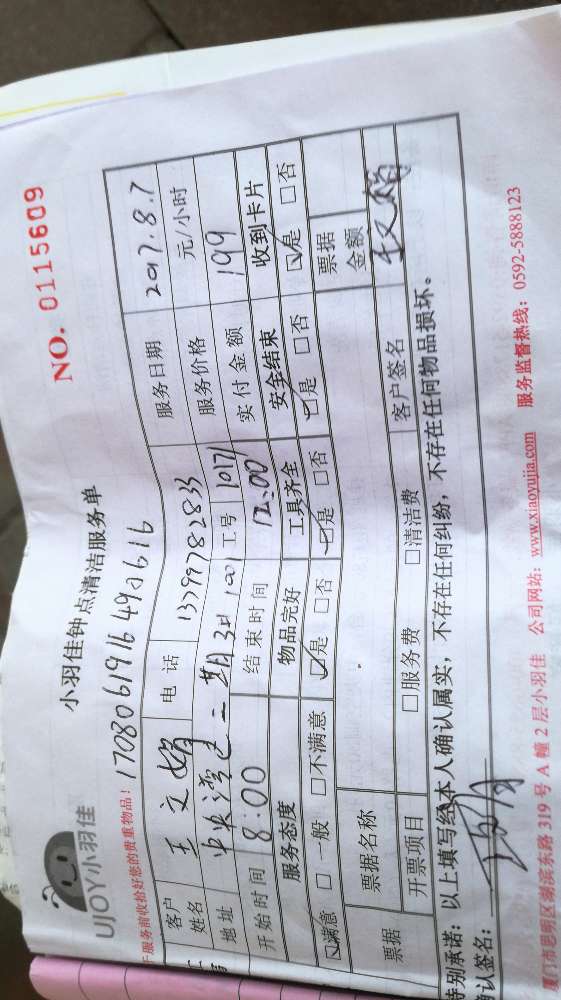 UJOY小羽佳
小羽佳钟点清洁服务单
NO. 0115609
于服务前收拾好您的贵重物品!
1708061916490616
客户姓名 王文娟 电话 13799782833 服务日期 2017.8.7
地址 中央湾区二期 工号 1017 服务价格 元/小时
开始时间 8:00 结束时间 12:00 实付金额 199
服务态度 物品完好 工具齐全 安全结束 收到卡片
☑满意 □一般 □不满意 ☑是 □否 ☑是 □否 ☑是 □否 ☑是 □否
票据 票据名称 票据金额
开票项目 □服务费 □清洁费 客户签名
特别承诺:以上填写经本人确认属实,不存在任何纠纷,不存在任何物品损坏。
认签名:
厦门市思明区湖滨东路319号A幢2层小羽佳 公司网站:www.xiaoyujia.com 服务监督热线:0592-5888123